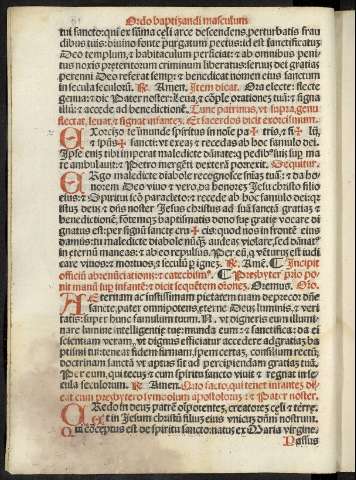 Ordo baptizandi masculum
tui sancto: qui ex sūma celi arce descendens perturbatis frau
dibus tuis: diuino fonte purgatum pectus: id est sanctificatuȝ
Deo templum, & habitaculum perficiat: & ab omnibus penitus
noxiis preteritorum criminum liberatus: seruus dei gratias
perenni Deo referat semper: & benedicat nomen eius sanctum
in secula seculoruȝ. R. Amen. Item dicat. Ora electe: flecte
genua: & dic Pater noster: Leua, & cōple orationes tuā: & signa
illū: & accede ad benedictionē. Tunc patrinus, vt supra, genu
flectat, leuat, & signat infantez. Et sacerdos dicit exorcismum.
EXorcizo te īmunde spiritus in noīe pa✠tris, & fi✠lii,
& spūs✠sancti: vt exeas & recedas ab hoc famulo dei.
Ipse enīȝ tibi imperat maledicte dānate, q̄ pedibus suis sup mare
ambulauit: & Petro mergēti dexterā porrexit. Sequitur.
ERgo maledicte diabole recognosce sniāȝ tuā: & da honorem
Deo viuo & vero, da honorez Jesu christo filio
eius: & Spiritui scō paracleto: & recede ab hoc famulo dei: quia
istuȝ deus & dn̄s noster Jesus christus ad suā sanctā gratiaȝ &
benedictionē, fontēqȝ baptismatis dono sue gratie vocare dignatus
est: per signū sancte cru✠cis: quod nos in fronte eius
damus: tu maledicte diabole nūqȝ audeas violare, sed dānatus
in eternū maneas: & abeo repulsus. Per eūȝ, q̄ vēturus est iudicare
viuos: & mortuos, & seculū p ignez. R. Amē. Incipit
officiū abrenūciationis: & catechismi. Presbyter prīo ponit
manū sup infantē: & dicit sequētem oīonez. Oremus. Oīo.
AEternam ac iustissimam pietatem tuam deprecor dn̄e
sancte, pater omnipotens, eterne Deus luminis, & veritatis:
super hunc famulum tuum. N. vt digneris eum illuminare
lumine intelligentie tue: munda eum: & sanctifica: da ei
scientiam veram, vt dignus efficiatur accedere ad gratiaȝ baptismi
tui: teneat fidem firmam, spem certaȝ, consilium rectū,
doctrinam sanctā vt aptus sit ad percipiendam gratiaȝ tuā.
Per eum, qui tecuȝ & cum spiritu sancto viuit & regnat in secula
seculorum. R. Amen. Quo facto, qui tenet infantez dicat
cum presbytero symbolum apostolorum: & Pater noster.
CRedo in deuȝ patrē oīpotentes, creatorez celi & terre,
et in Jesum christū filiuȝ eius vnicuȝ dn̄m nostrum.
Qui cōceptus est de spiritu sancto: natus ex Maria virgine.
Passus